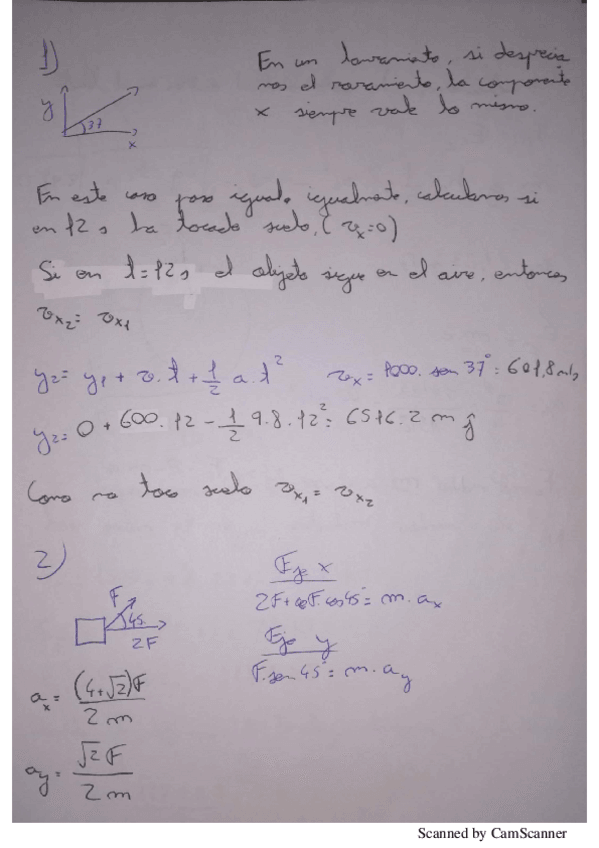 1)
En un lanzamiento, si desprecia
mos el rozamiento, la componente
x siempre vale lo mismo.
y
37
x
En este caso pasa igual, igualmente, calculamos si
en 12 s ha tocado suelo, (v_x=0)
Si en t=12 s el objeto sigue en el aire, entonces
v_x2 = v_x1
y2 = y1 + v.t + 1/2 a.t² v_x = 1000. sen 37° = 601,8 m/s
y2 = 0 + 600.12 - 1/2 9.8.12² = 6516.2 m ĵ
Como no toca suelo v_x1 = v_x2
2)
F
45
2F
Eje x
2F + F.cos45° = m.a_x
Eje y
F.sen 45° = m.a_y
a_x = (4+√2)F / 2m
a_y = √2 F / 2m
Scanned by CamScanner